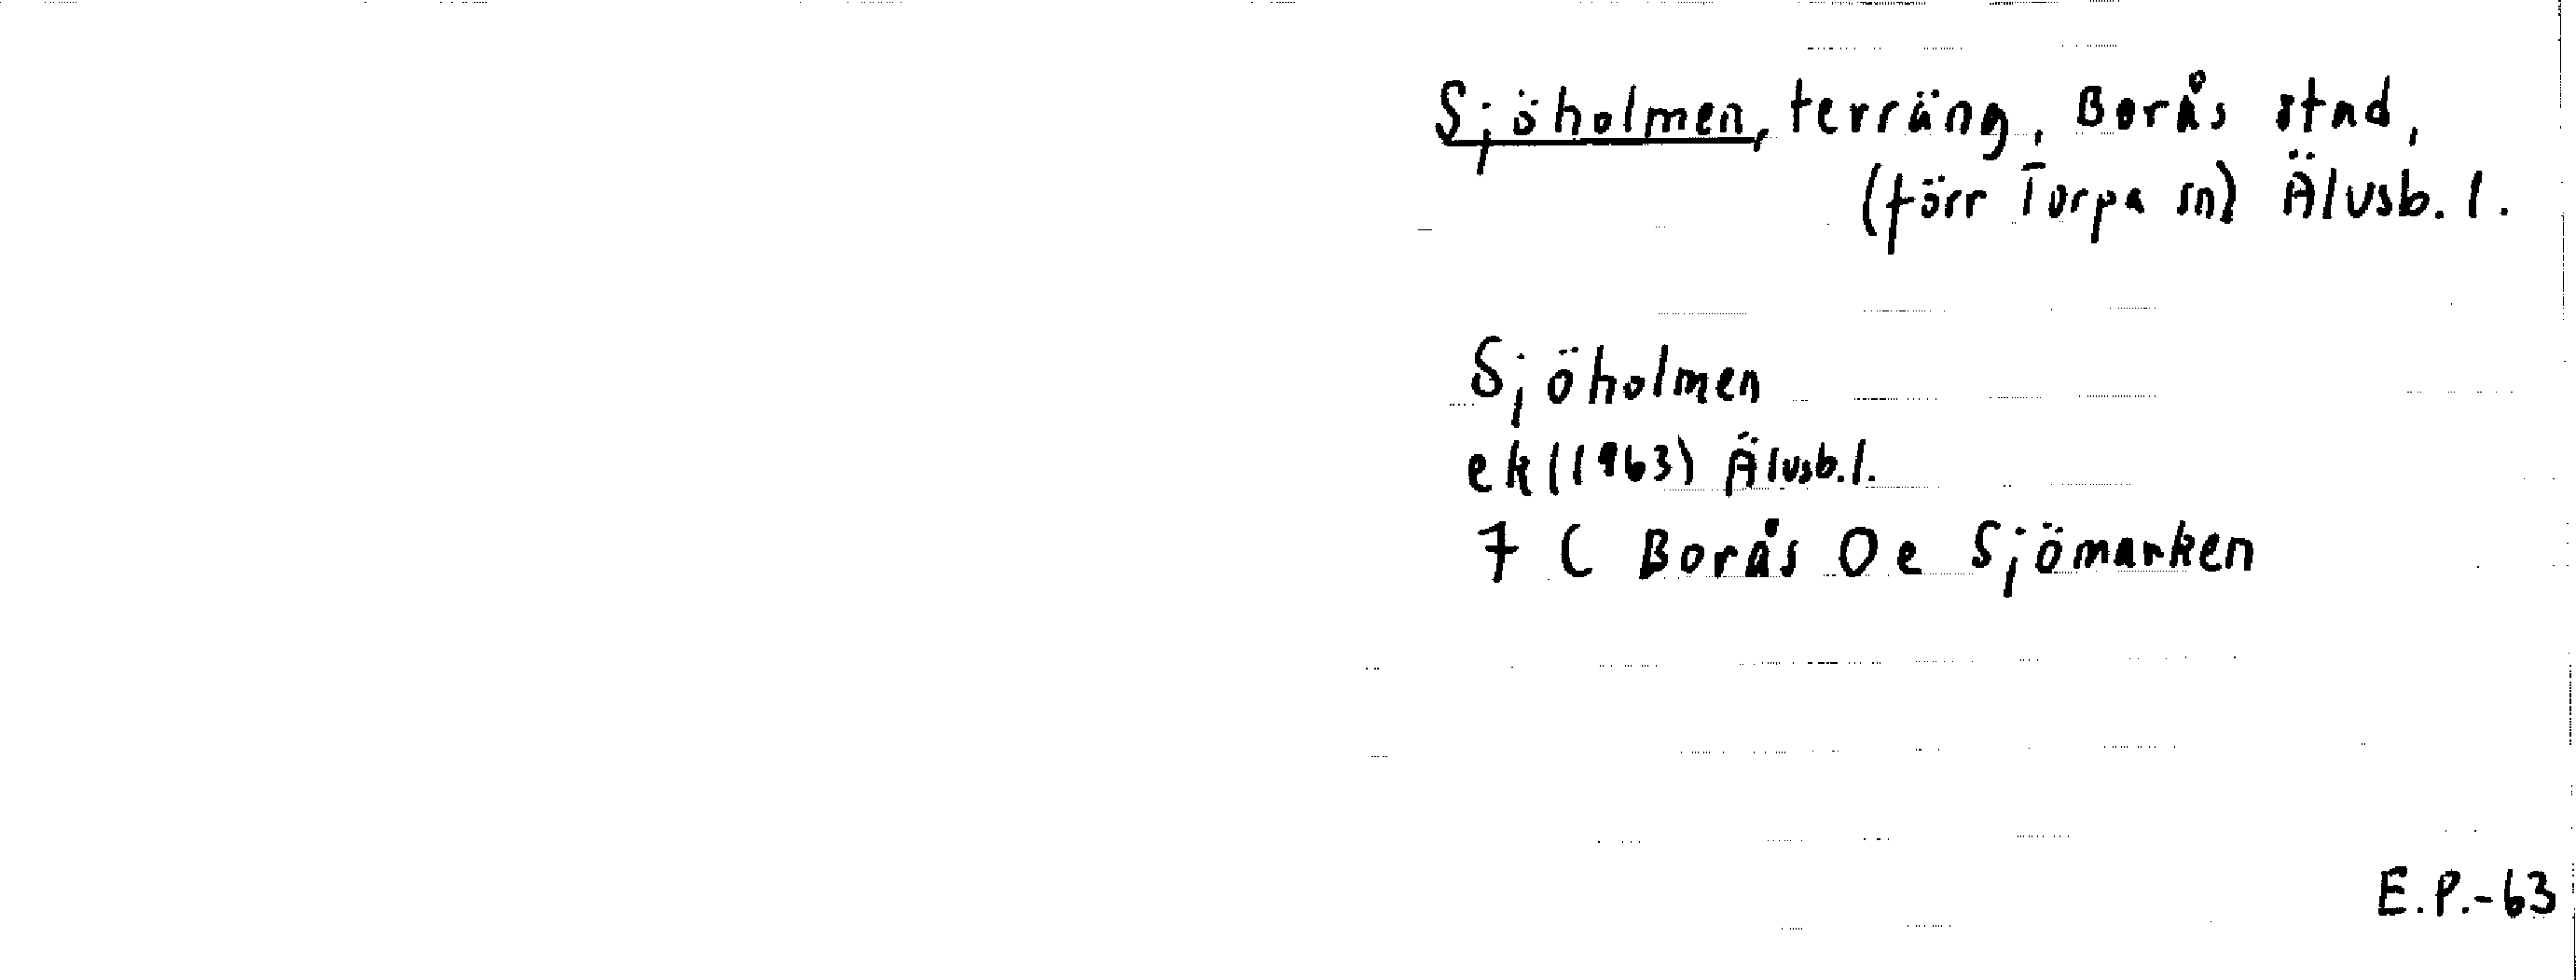 Sjöholmen, terräng, Borås stad,
(förr Torpa sn) Älvsb. l.
Sjöholmen
ek (1963) Älvsb. l.
7 C Borås 0 e Sjömarken
E.P.-63